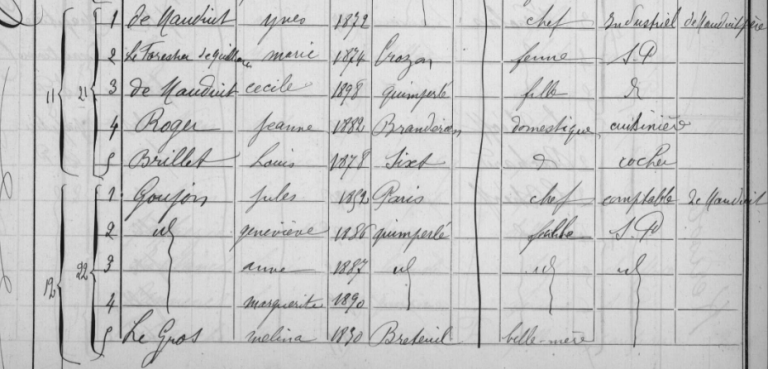 11 21 1 de Mauduit yves 1872 chef industriel de Mauduit père
2 Le Forestier de Quillien marie 1874 Crozon femme S.P
3 de Mauduit cecile 1898 quimperlé fille d
4 Roger jeanne 1882 Branderion domestique cuisinière
5 Brillet Louis 1878 Sixt d cocher
12 22 1 Goujon jules 1852 Paris chef comptable de Mauduit
2 id geneviève 1886 quimperlé fille S.P
3 anne 1887 id id id
4 marguerite 1890
5 Le Gros melina 1830 Breteuil belle-mère